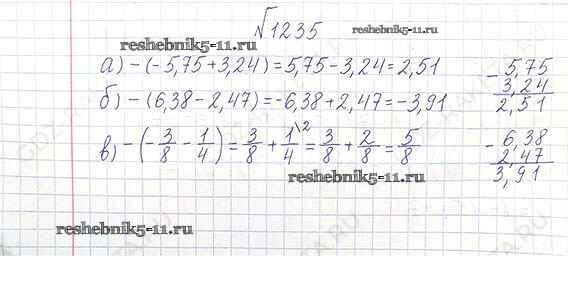 √1235
reshebnik5-11.ru
reshebnik5-11.ru
а) -(-5,75+3,24)=5,75-3,24=2,51
- 5,75
3,24
2,51
б) -(6,38-2,47)=-6,38+2,47=-3,91
в) -(-3/8 - 1/4) = 3/8 + 1\2/4 = 3/8 + 2/8 = 5/8
- 6,38
2,47
3,91
reshebnik5-11.ru
reshebnik5-11.ru